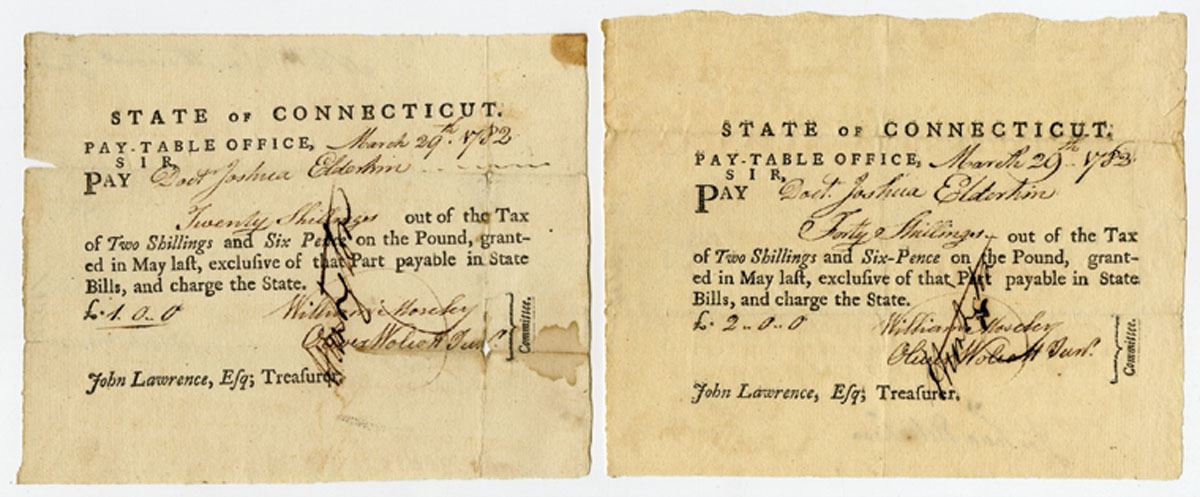 STATE OF CONNECTICUT.
PAY-TABLE OFFICE, March 29th. 1782
SIR,
PAY Doct. Joshua Elderkin
Twenty Shillings out of the Tax
of Two Shillings and Six Pence on the Pound, grant-
ed in May laſt, excluſive of that Part payable in State
Bills, and charge the State.
£. 1..0..0
William Moseley
Oliver Wolcott Junr.
Committee.
John Lawrence, Eſq; Treaſurer.
STATE OF CONNECTICUT.
PAY-TABLE OFFICE, March 29th.. 1782
SIR,
PAY Doct. Joshua Elderkin
Forty Shillings out of the Tax
of Two Shillings and Six-Pence on the Pound, grant-
ed in May laſt, excluſive of that Part payable in State
Bills, and charge the State.
£. 2..0..0
William Moseley
Oliver Wolcott Junr.
Committee.
John Lawrence, Eſq; Treaſurer.